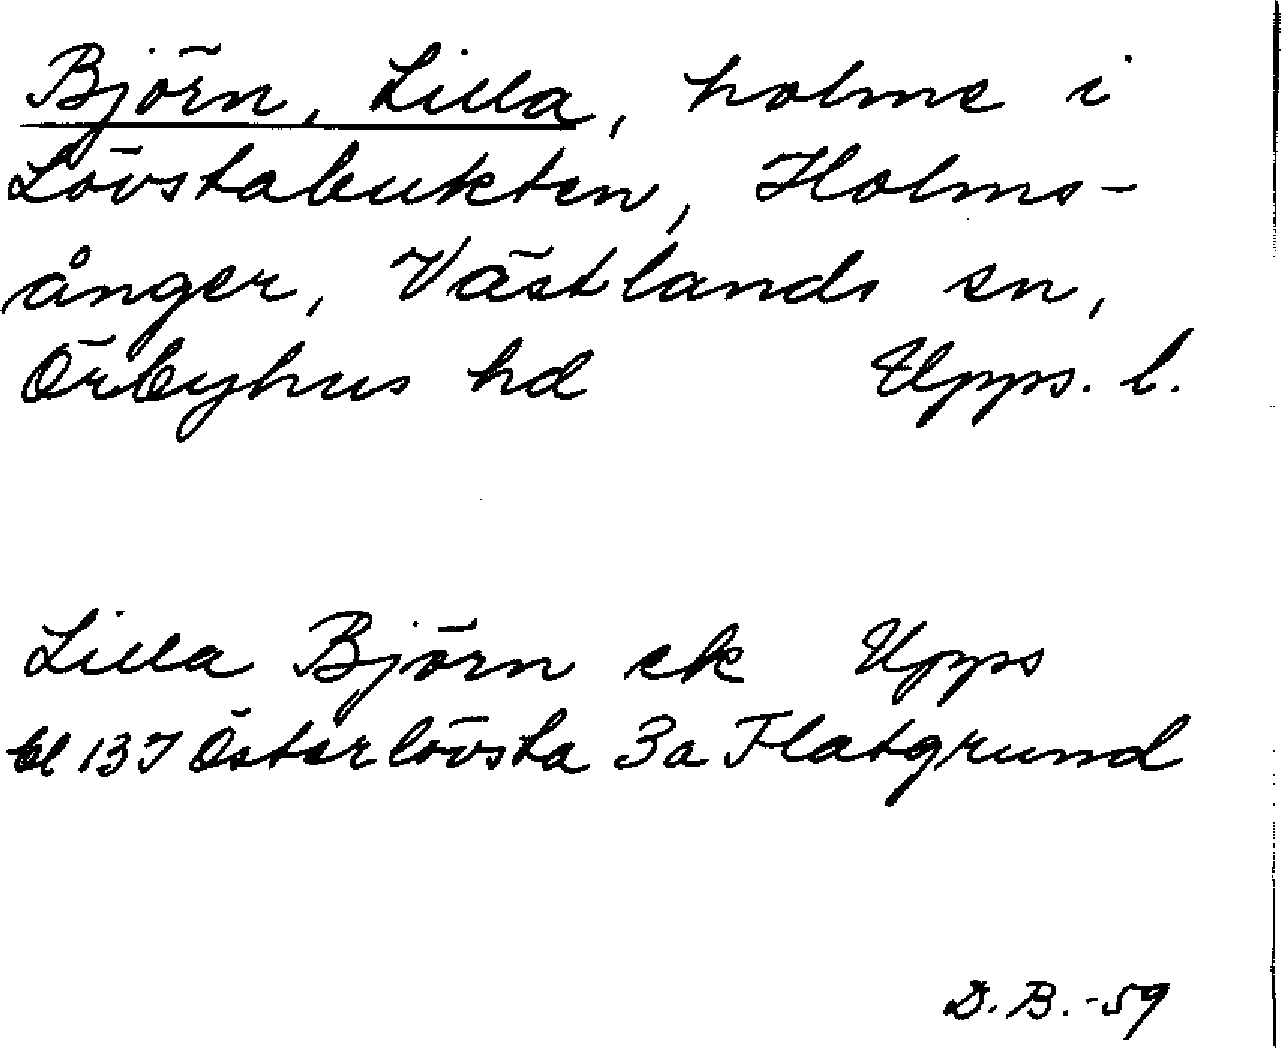 Björn, Lilla, holme i
Lövstabukten, Holms-
ånger, Västlands sn,
Örbyhus hd Upps. l.
Lilla Björn ek Upps
bl 137 Österlövsta 3a Flatgrund
D. B. -59